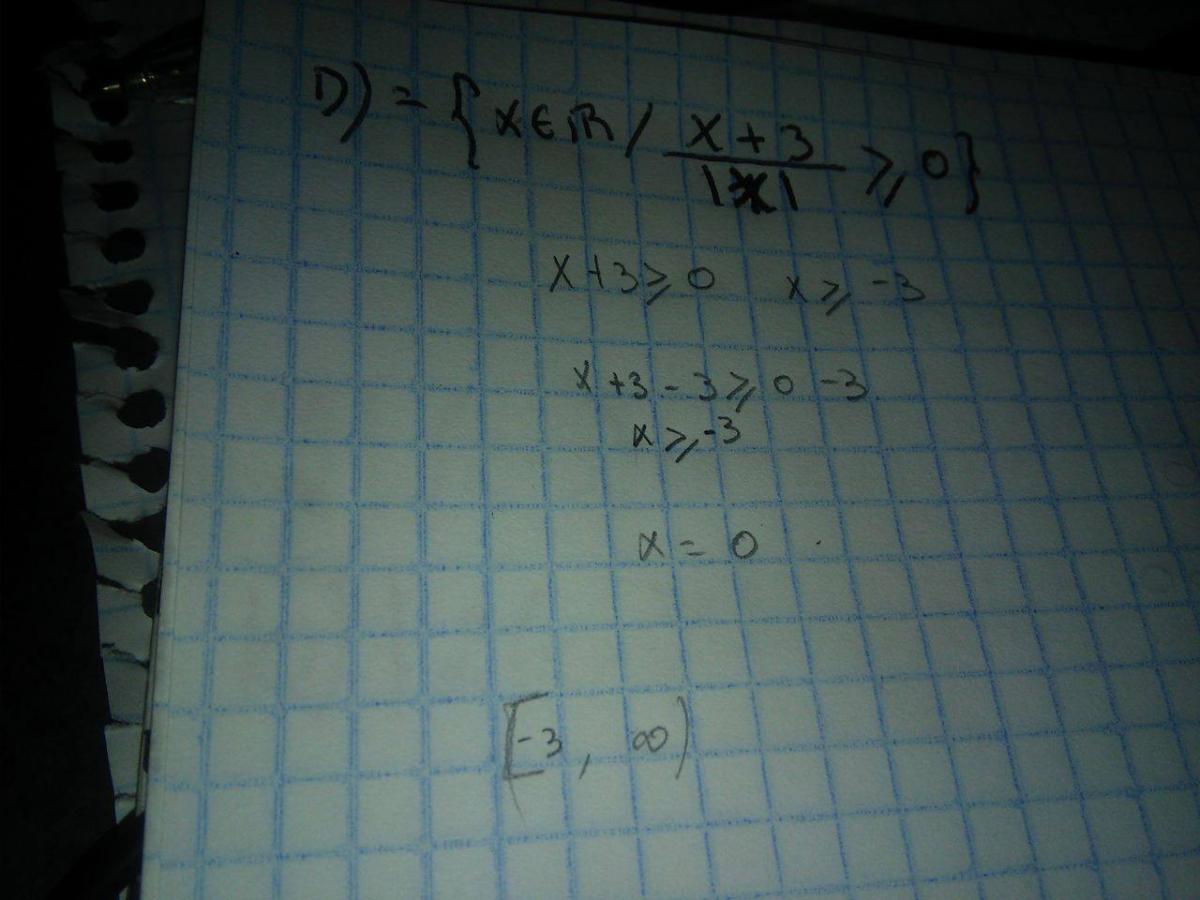 D) = { x ∈ ℝ / x + 3 / |x| ≥ 0 }
x + 3 ≥ 0    x ≥ -3
x + 3 - 3 ≥ 0 - 3
x ≥ -3
x = 0
[-3, ∞)